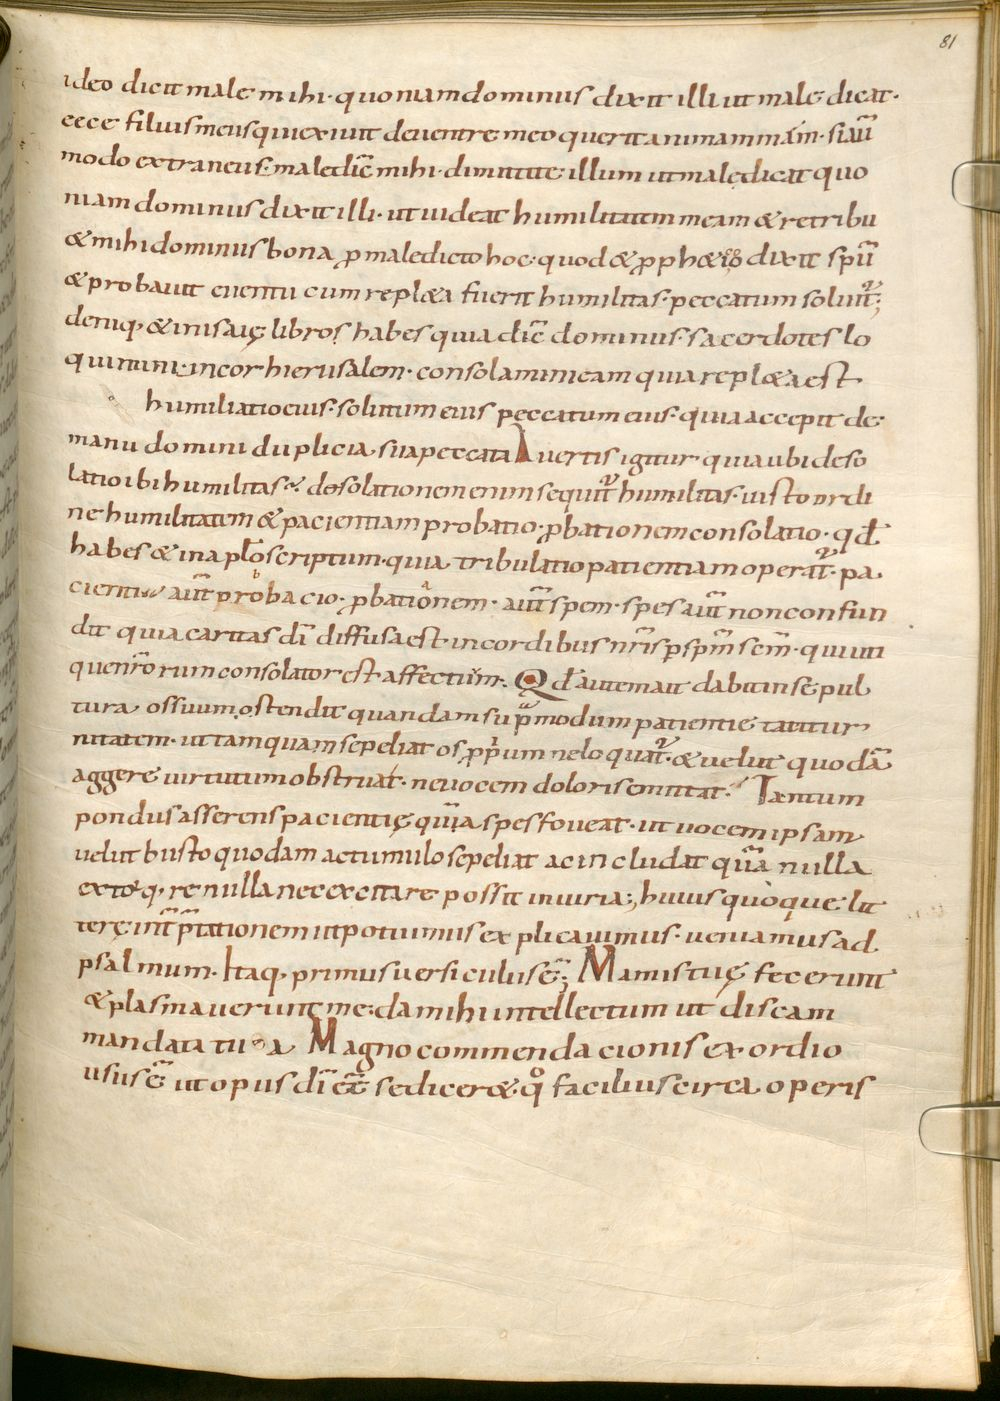 81
ideo dicit male mihi · quoniam dominus dixit illi ut male dicat ·
ecce filius meus qui exiuit de uentre meo querit animam mēam · si aū
modo extraneus · maledic̄ mihi · dimittite illum ut maledicat quo
niam dominus dixit illi · ut uideat humilitatem meam & retribu
& mihi dominus bona ꝓ maledicto hoc · quod & ꝓph& dixit spū
& probauit euentu cum repl&a fuerit humilitas · peccatum soluit᷑;
deniq· & in isaię libros habes quia dic̄ dominus · sacerdotes lo
quimini in cor hierusalem · consolamini eam quia repl&a est
humiliatio eius · solutum eius peccatum eius · quia accepit de
manu domini duplicia sua peccata Auertis igitur quia ubi deso
latio ibi humilitas ÷ desolationem enim sequit᷑ humilitas · iusto ordi
ne humilitatem & pacientiam probatio · ꝓbationem consolatio · qđ
habes & in aplo scriptum · quia tribulatio patientiam operat᷑ · pa
cientia aūt probacio · ꝓbationem · aūt spem · spes aūt non confun
dit quia caritas dī diffusa est in cordibus nr̄is ꝑ spm̄ scm̄ · qui uti
que nr̄orum consolator est affectuum · Qđ autem ait dabit in sepul
tura ossuum ostendit quandam supmodum patientię tacitur
nitatem · ut tamquam sepeliat os ꝓprium ne loquat᷑ · & uelut quodā
aggere uirtutum obstruat · ne uocem doloris emittat · Tantum
pondus asserens pacientię quā spes foueat · ut uocem ipsam
uelut busto quodam ac tumulo sepeliat ac includat quā nulla
extorq·re nulla nec excitare possit iniuria; huius quoque lit
terę int̄p̄tationem ut potuimus explicauimus · ueniamus ad
psalmum · Itaq· primus uersiculus ē; Manus tuę fecerunt
& plasmauerunt me · da mihi intellectum ut discam
mandata tua Magno commendacionis exordio
usus ē ut opus dī eē se dicer& · qͦ facilius circa operis